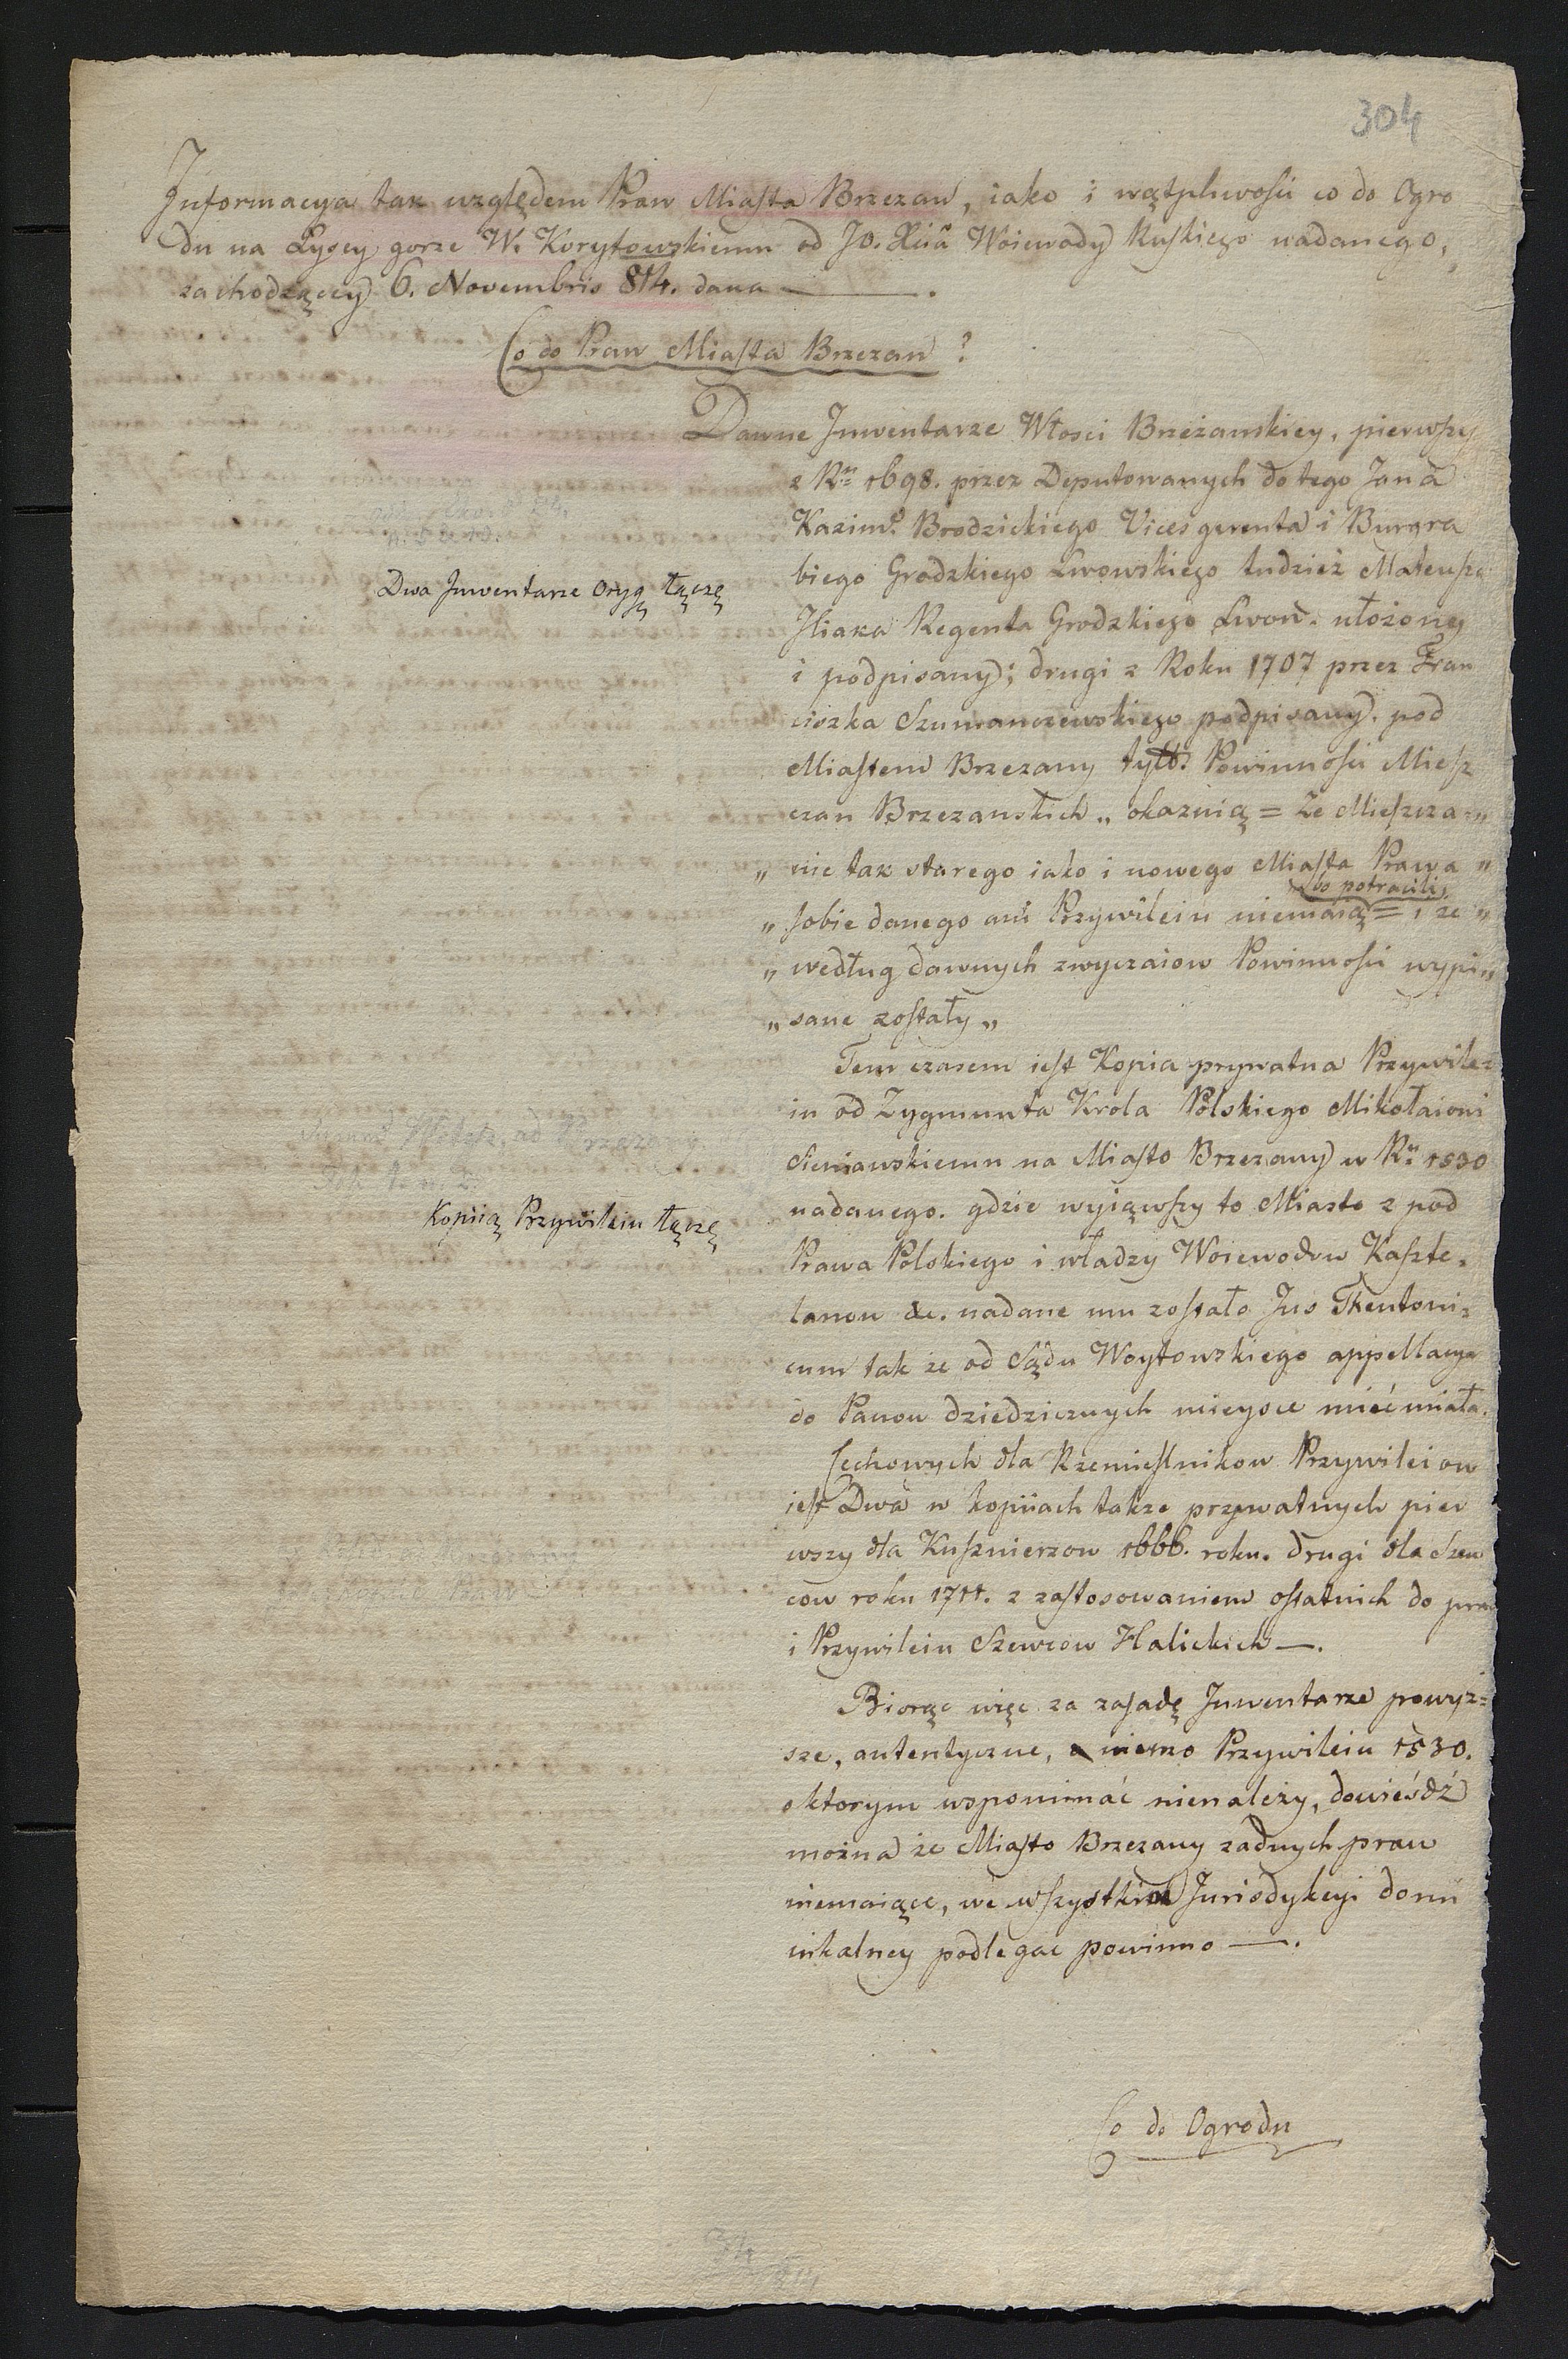 304
Informacya tak względem Praw Miasta Brzezan, iako i wątpliwosci co do Ogro
du na Łysey gorze W. Korytowskiemu od JO. Xcia Woiewody Ruskiego nadanego,
zachodzącey 6. Novembris 814. dana —.
Co do Praw Miasta Brzezan?
Dawne Jnwentarze Włosci Brzeżanskiey, pierwszy
z Ru 1698. przez Deputowanych do tego Jana
Kazimo Brodzickiego Vices gerenta i Burgra
biego Grodzkiego Lwowskiego tudzież Mateusza
Iliaka Regenta Grodzkiego Lwow. ułożony
i podpisany; drugi z Roku 1707 przez Fran
ciszka Szumanczewskiego podpisany. pod
Miastem Brzezany tyt. Powinnosci Miesz
czan Brzezanskich „ okaznią = Ze Mieszcza=„
„ nie tak starego iako i nowego Miasta Prawa „
bo potracili
„ sobie danego ani Przywileiu niemaią = i ze „
„ według dawnych zwyczaiow Powinnosci wypi„
„ sane zostały „
Dwa Jnwentarze oryg łączę
Tem czasem iest Kopia prywatna Przywile=
iu od Zygmunta Krola Polskiego Mikołaiowi
Sieniawskiemu na Miasto Brzezany w Ru 1530
nadanego. gdzie wyiąwszy to Miasto z pod
Prawa Polskiego i władzy Woiewodow Kaszte=
lanow &c. nadane mu zostało Jus Theutoni=
cum tak że od Sądu Woytowskiego appellacya
do Panow dziedzicznych mieysce mieć miała.
Kopiią Przywileiu łączę
Cechowych dla Rzemieslnikow Przywileiow
iest Dwa w kopiiach takze prywatnych pier
wszy dla Kusznierzow 1666. roku. drugi dla Szew
cow roku 1711. z zastosowaniem ostatnich do praw
i Przywileiu Szewcow Halickich —.
Biorąc więc za zasadę Jnwentarze powyz=
sze, autentyczne, a mimo Przywileiu 1530.
o ktorym wspominać nienależy, dowieśdź
można że Miasto Brzezany żadnych praw
niemaiące, we wszystkim Jurisdykcyi domi
nikalney podlegac powinno —.
Co do Ogrodu